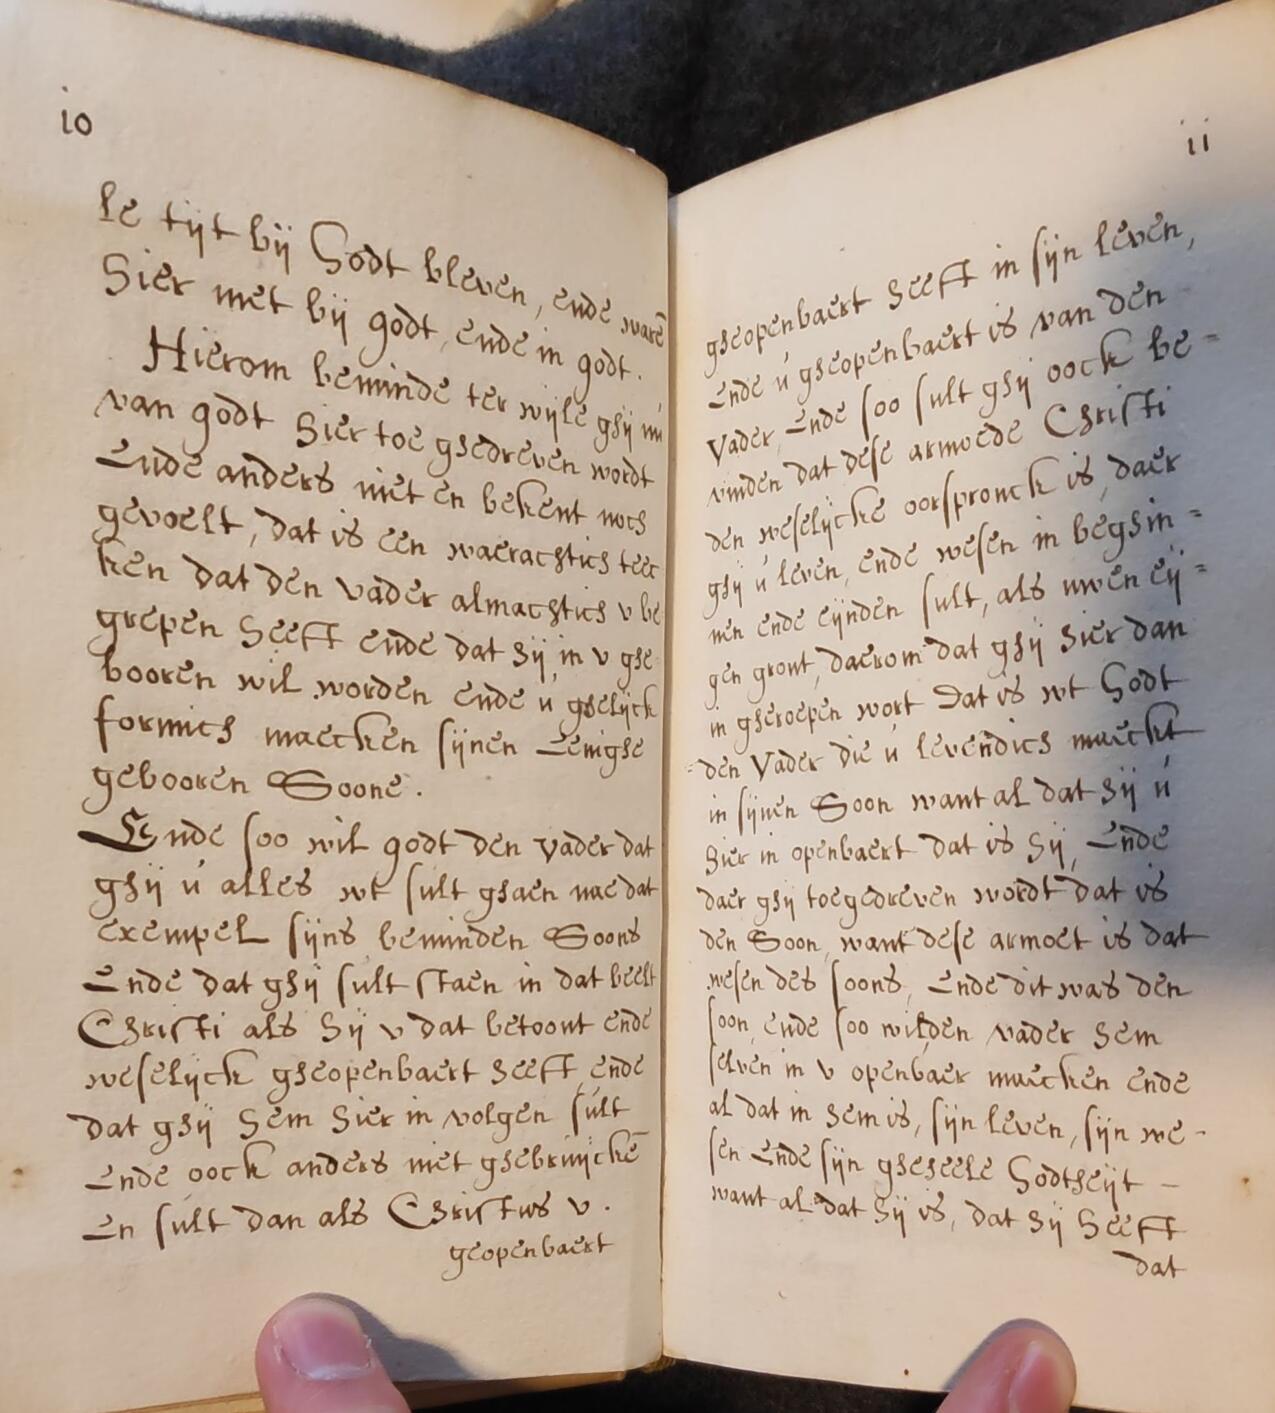 10
le tijt bij Godt bleven, ende warē
hier met bij godt, ende in godt.
Hierom beminde ter wijle ghij nú
van godt hier toe ghedreven wordt
Ende anders niet en bekent noch
gevoelt, dat is een waerachtich teec
ken dat den vader almachtich v be
grepen heeft ende dat hij in v ghe
booren wil worden ende ú ghelijck
formich maecken sijnen Eenighe
gebooren Soone.
Ende soo wil godt den vader dat
ghij ú alles wt sult ghaen nae dat
exempel sijns beminden Soons
Ende dat ghij sult staen in dat beelt
Christi als hij v dat betoont ende
weselijck gheopenbaert heeft, ende
dat ghij hem hier in volgen sult
Ende oock anders niet ghebruijckē
En sult dan als Christus v.
geopenbaert
11
gheopenbaert heeft in sijn leven,
Ende ú gheopenbaert is van den
Vader, Ende soo sult ghij oock be=
vinden dat dese armoede Christi
den weselijcke oorspronck is, daer
ghij ú leven, ende wesen in beghin=
nen ende eijnden sult, als uwen eij=
gen gront, daerom dat ghij hier dan
in gheroepen wort Dat is wt Godt
den Vader die ú levendich maeckt
in sijnen Soon want al dat hij ú
hier in openbaert dat is hij, Ende
daer ghij toegedreven wordt dat is
den Soon, want dese armoet is dat
wesen des soons, Ende dit was den
soon, ende soo wilden vader hem
selven in v openbaer maecken ende
al dat in hem is, sijn leven, sijn we-
sen Ende sijn gheheele Godtheijt -
want al dat hij is, dat hij heeft
dat